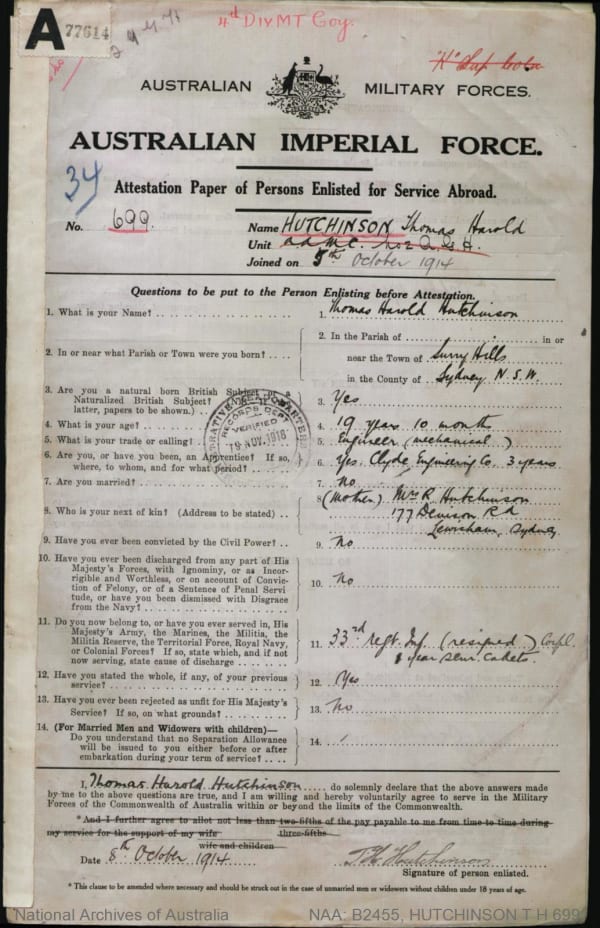 A 77614
4th Div MT Coy.
"H" Sup Coln
AUSTRALIAN MILITARY FORCES.
AUSTRALIAN IMPERIAL FORCE.
34
Attestation Paper of Persons Enlisted for Service Abroad.
No. 699. Name HUTCHINSON Thomas Harold
Unit A.A.M.C. No 2 A.G.H.
Joined on 5th October 1914
Questions to be put to the Person Enlisting before Attestation.
1. What is your Name? 1. Thomas Harold Hutchinson
2. In or near what Parish or Town were you born? 2. In the Parish of in or
near the Town of Surry Hills
in the County of Sydney N.S.W.
3. Are you a natural born British Subject or a
Naturalized British Subject? (If the
latter, papers to be shown.) 3. Yes
4. What is your age? 4. 19 years 10 months
5. What is your trade or calling? 5. Engineer (mechanical)
6. Are you, or have you been, an Apprentice? If so,
where, to whom, and for what period? 6. Yes. Clyde Engineering Co. 3 years
7. Are you married? 7. No
8. Who is your next of kin? (Address to be stated) 8 (Mother) Mrs R. Hutchinson
177 Denison Rd
Lewisham, Sydney
RECORDS DEPT
VERIFIED
19 NOV. 1918
9. Have you ever been convicted by the Civil Power? 9. No
10. Have you ever been discharged from any part of His
Majesty's Forces, with Ignominy, or as Incor-
rigible and Worthless, or on account of Convic-
tion of Felony, or of a Sentence of Penal Servi-
tude, or have you been dismissed with Disgrace
from the Navy? 10. No
11. Do you now belong to, or have you ever served in, His
Majesty's Army, the Marines, the Militia, the
Militia Reserve, the Territorial Force, Royal Navy,
or Colonial Forces? If so, state which, and if not
now serving, state cause of discharge 11. 33rd Regt. Inf. (resigned) Corpl.
1 year Senr. Cadets.
12. Have you stated the whole, if any, of your previous
service? 12. Yes
13. Have you ever been rejected as unfit for His Majesty's
Service? If so, on what grounds? 13. No
14. (For Married Men and Widowers with children)—
Do you understand that no Separation Allowance
will be issued to you either before or after
embarkation during your term of service? 14. /
I, Thomas Harold Hutchinson do solemnly declare that the above answers made
by me to the above questions are true, and I am willing and hereby voluntarily agree to serve in the Military
Forces of the Commonwealth of Australia within or beyond the limits of the Commonwealth.
* And I further agree to allot not less than two-fifths of the pay payable to me from time to time during
three-fifths
my service for the support of my wife
wife and children
Date 8th October 1914. T.H. Hutchinson
Signature of person enlisted.
* This clause to be amended where necessary and should be struck out in the case of unmarried men or widowers without children under 18 years of age.
National Archives of Australia NAA: B2455, HUTCHINSON T H 699